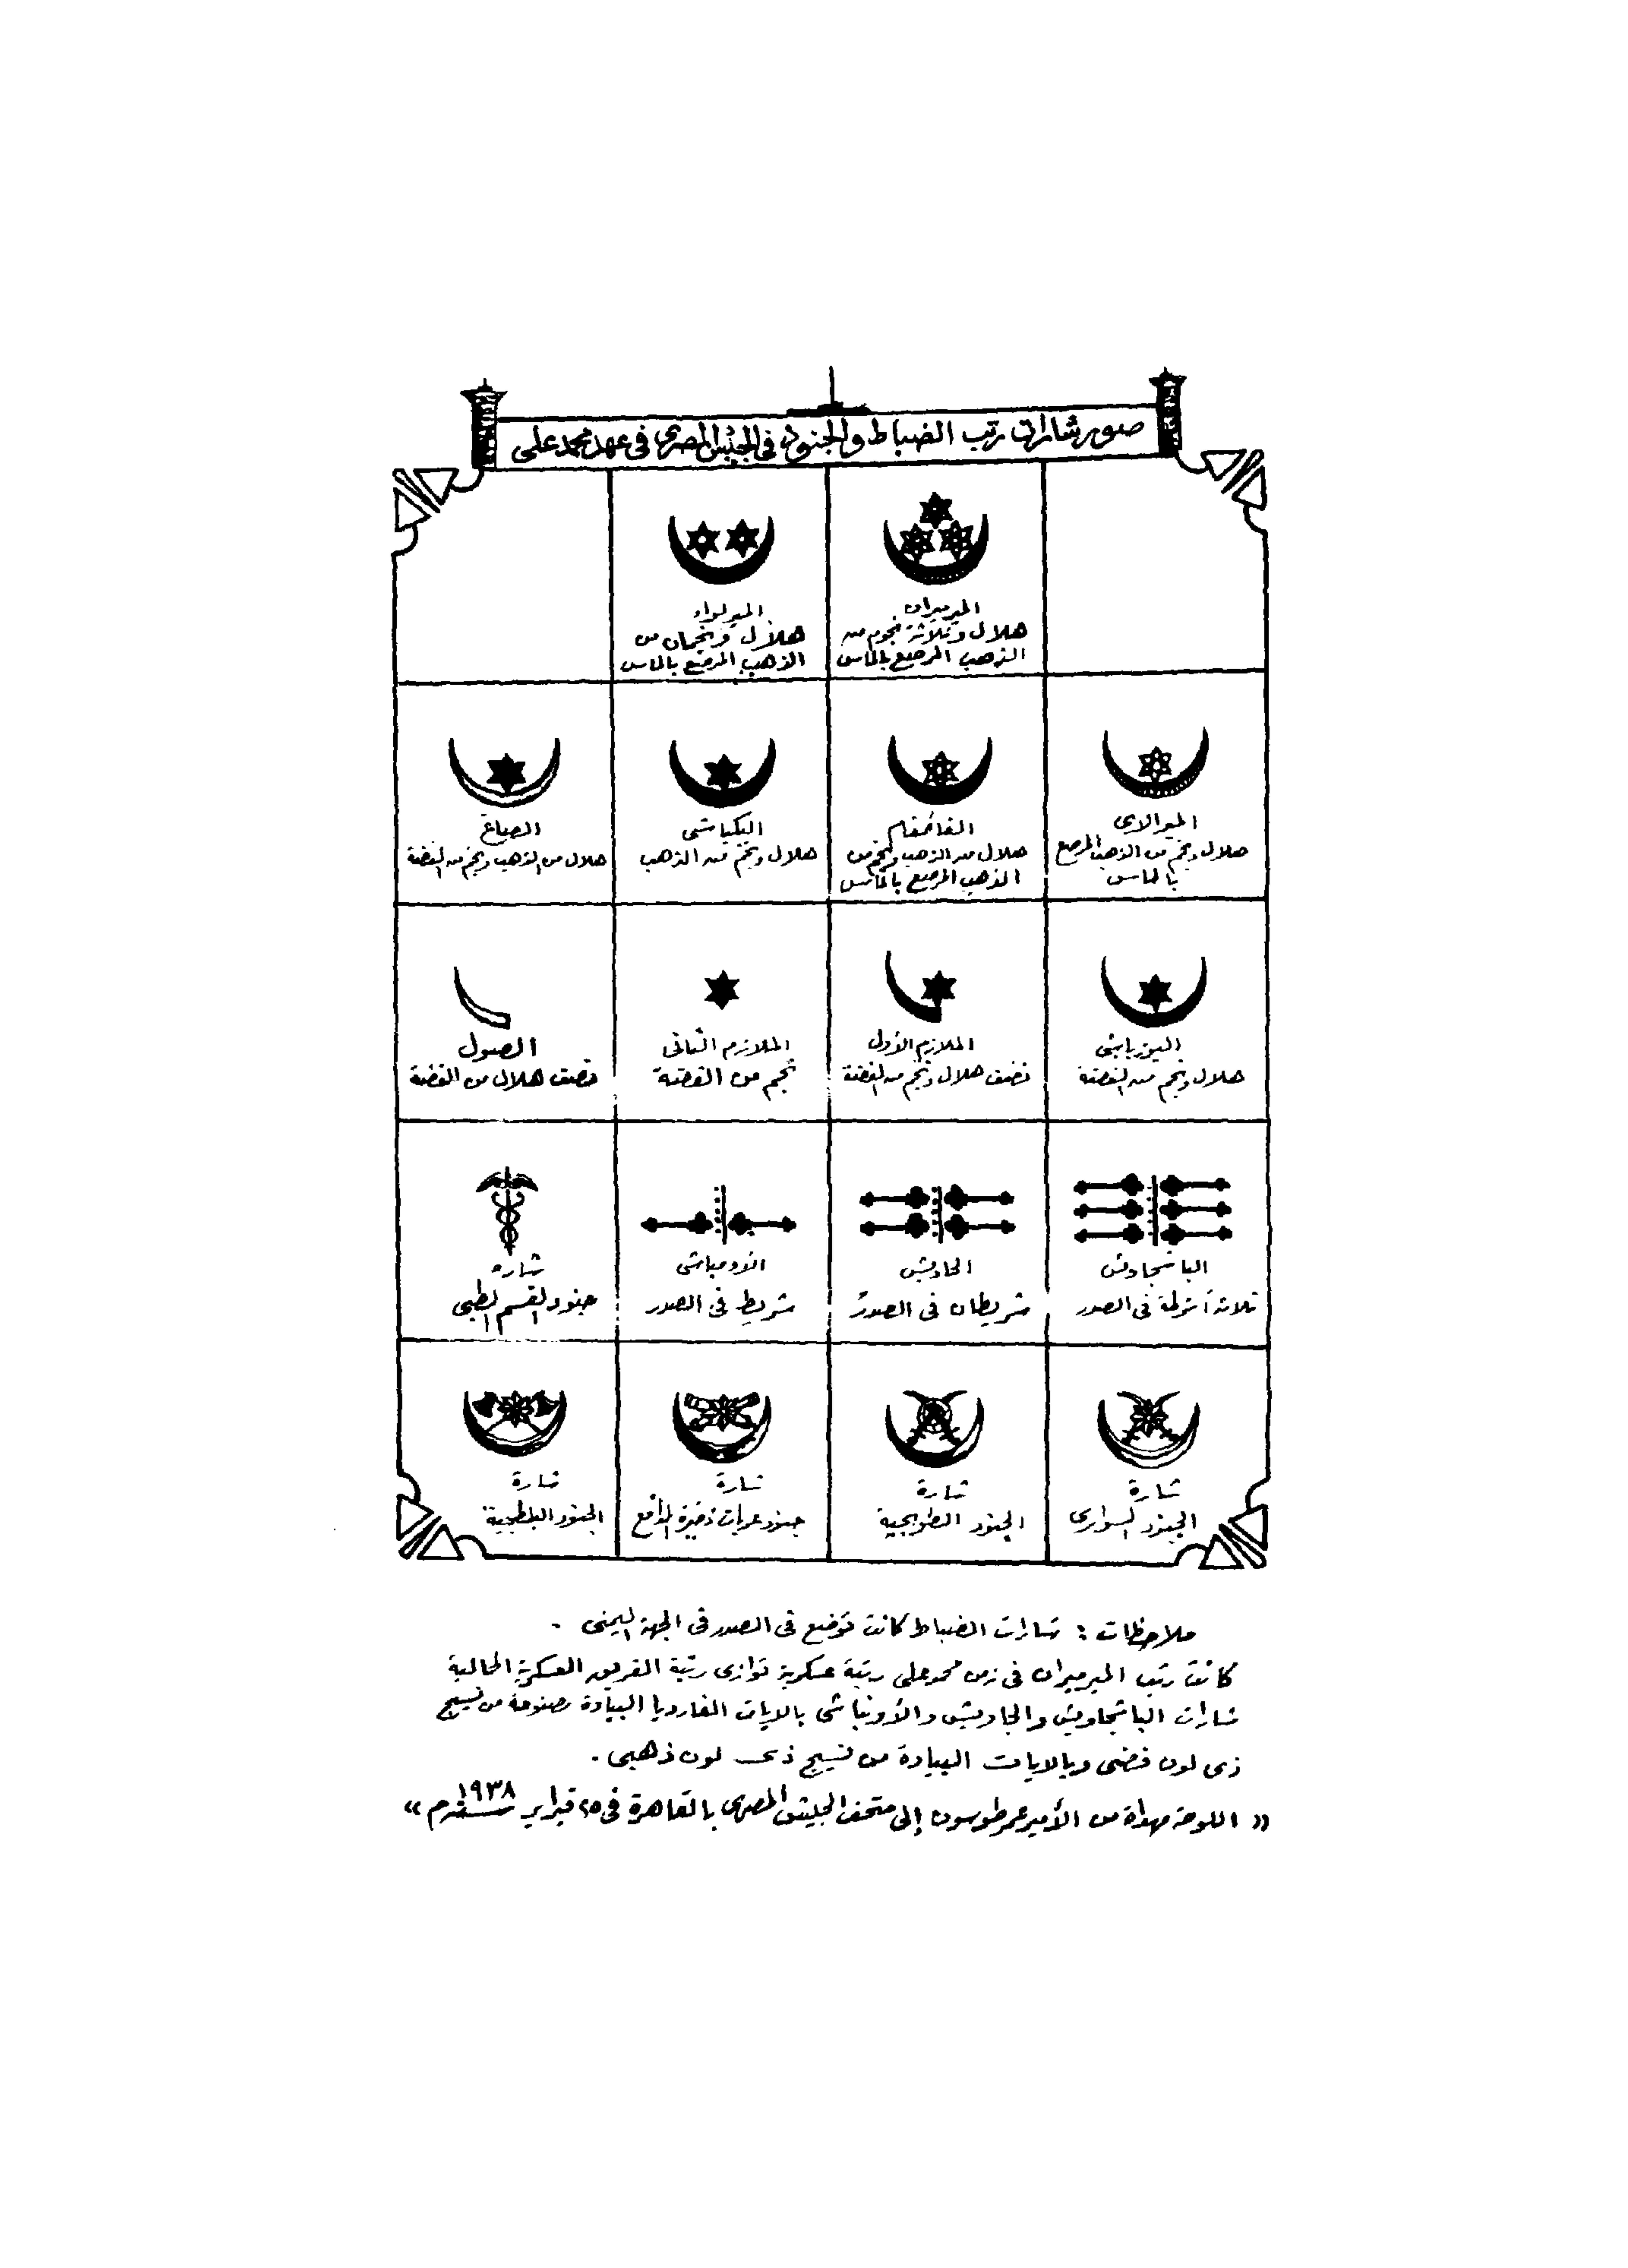 صور شارات رتب الضباط والجنود في الجيش المصرى في عهد محمد على
الميرميران
هلال وثلاثة نجوم من
الذهب المرصع بالماس
الميرلواء
هلال ونجمان من
الذهب المرصع بالماس
الميرالاى
هلال ونجم من الذهب المرصع
بالماس
القائمقام
هلال من الذهب ونجم من
الذهب المرصع بالماس
البكباشى
هلال ونجم من الذهب
الصاغ
هلال من الذهب ونجم من الفضة
اليوزباشى
هلال ونجم من الفضة
الملازم الأول
نصف هلال ونجم من الفضة
الملازم الثانى
نجم من الفضة
الصول
نصف هلال من الفضة
الباشجاويش
ثلاثة أشرطة فى الصدر
الجاويش
شريطان فى الصدر
الاونباشى
شريط فى الصدر
شارة
جنود القسم الطبى
شارة
الجنود السوارى
شارة
الجنود الطوبجية
شارة
جنود عربات ذخيرة المدافع
شارة
الجنود البلطجية
ملاحظات : شارات الضباط كانت توضع فى الصدر فى الجهة اليمنى .
كانت رتب الميرميران فى زمن محمد على رتبة عسكرية توازى رتبة الفريق العسكرية الحالية
شارات الباشجاويش والجاويش والأونباشى بالايات الغارديا البيادة مصنوعة من نسيج
ذى لون فضى وبالايات البيادة من نسيج ذى لون ذهبى .
« اللوحة مهداة من الأمير عمر طوسون إلى متحف الجيش المصرى بالقاهرة فى ٢٥ فبراير سنة ١٩٣٨ م »